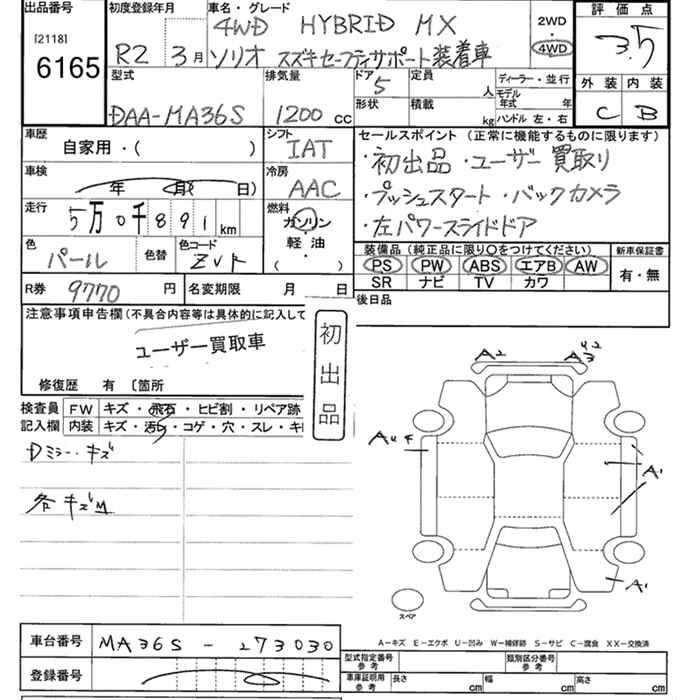 出品番号
[2118]
6165
初度登録年月
R2 3月
車名・グレード
4WD HYBRID MX
ソリオ スズキセーフティサポート装着車
2WD
・
4WD
評価点
3.5
外装 内装
C B
型式
DAA-MA36S
排気量
1200 cc
ドア
5
形状
定員
人
積載
kg
ディーラー・並行
モデル
年式 年
ハンドル 左・右
車歴
自家用・( )
シフト
IAT
セールスポイント (正常に機能するものに限ります)
・初出品 ・ユーザー買取り
・プッシュスタート ・バックカメラ
・左パワースライドドア
車検
年 月( 日)
冷房
AAC
走行
5万0千891 km
燃料
ガソリン
・
軽油
・
( )
色
パール
色替
色コード
ZVR
装備品 (純正品に限り○をつけてください)
PS PW ABS エアB AW
SR ナビ TV カワ
新車保証書
有・無
R券 9770 円
名変期限 月 日
後日品
注意事項申告欄 (不具合内容等は具体的に記入して
ユーザー買取車
修復歴 有 〔箇所
初出品
検査員
記入欄
FW キズ・飛石・ヒビ割・リペア跡
内装 キズ・汚れ・コゲ・穴・スレ・キ
Dミラーキズ
各キズM
A2
A4
A1
A1
スペア
A-キズ E-エクボ U-凹み W-補修跡 S-サビ C-腐食 XX-交換済
車台番号 MA36S - 273030
登録番号
型式指定番号
参考
類別区分番号
参考
車庫証明用
参考
長さ cm 幅 cm 高さ cm